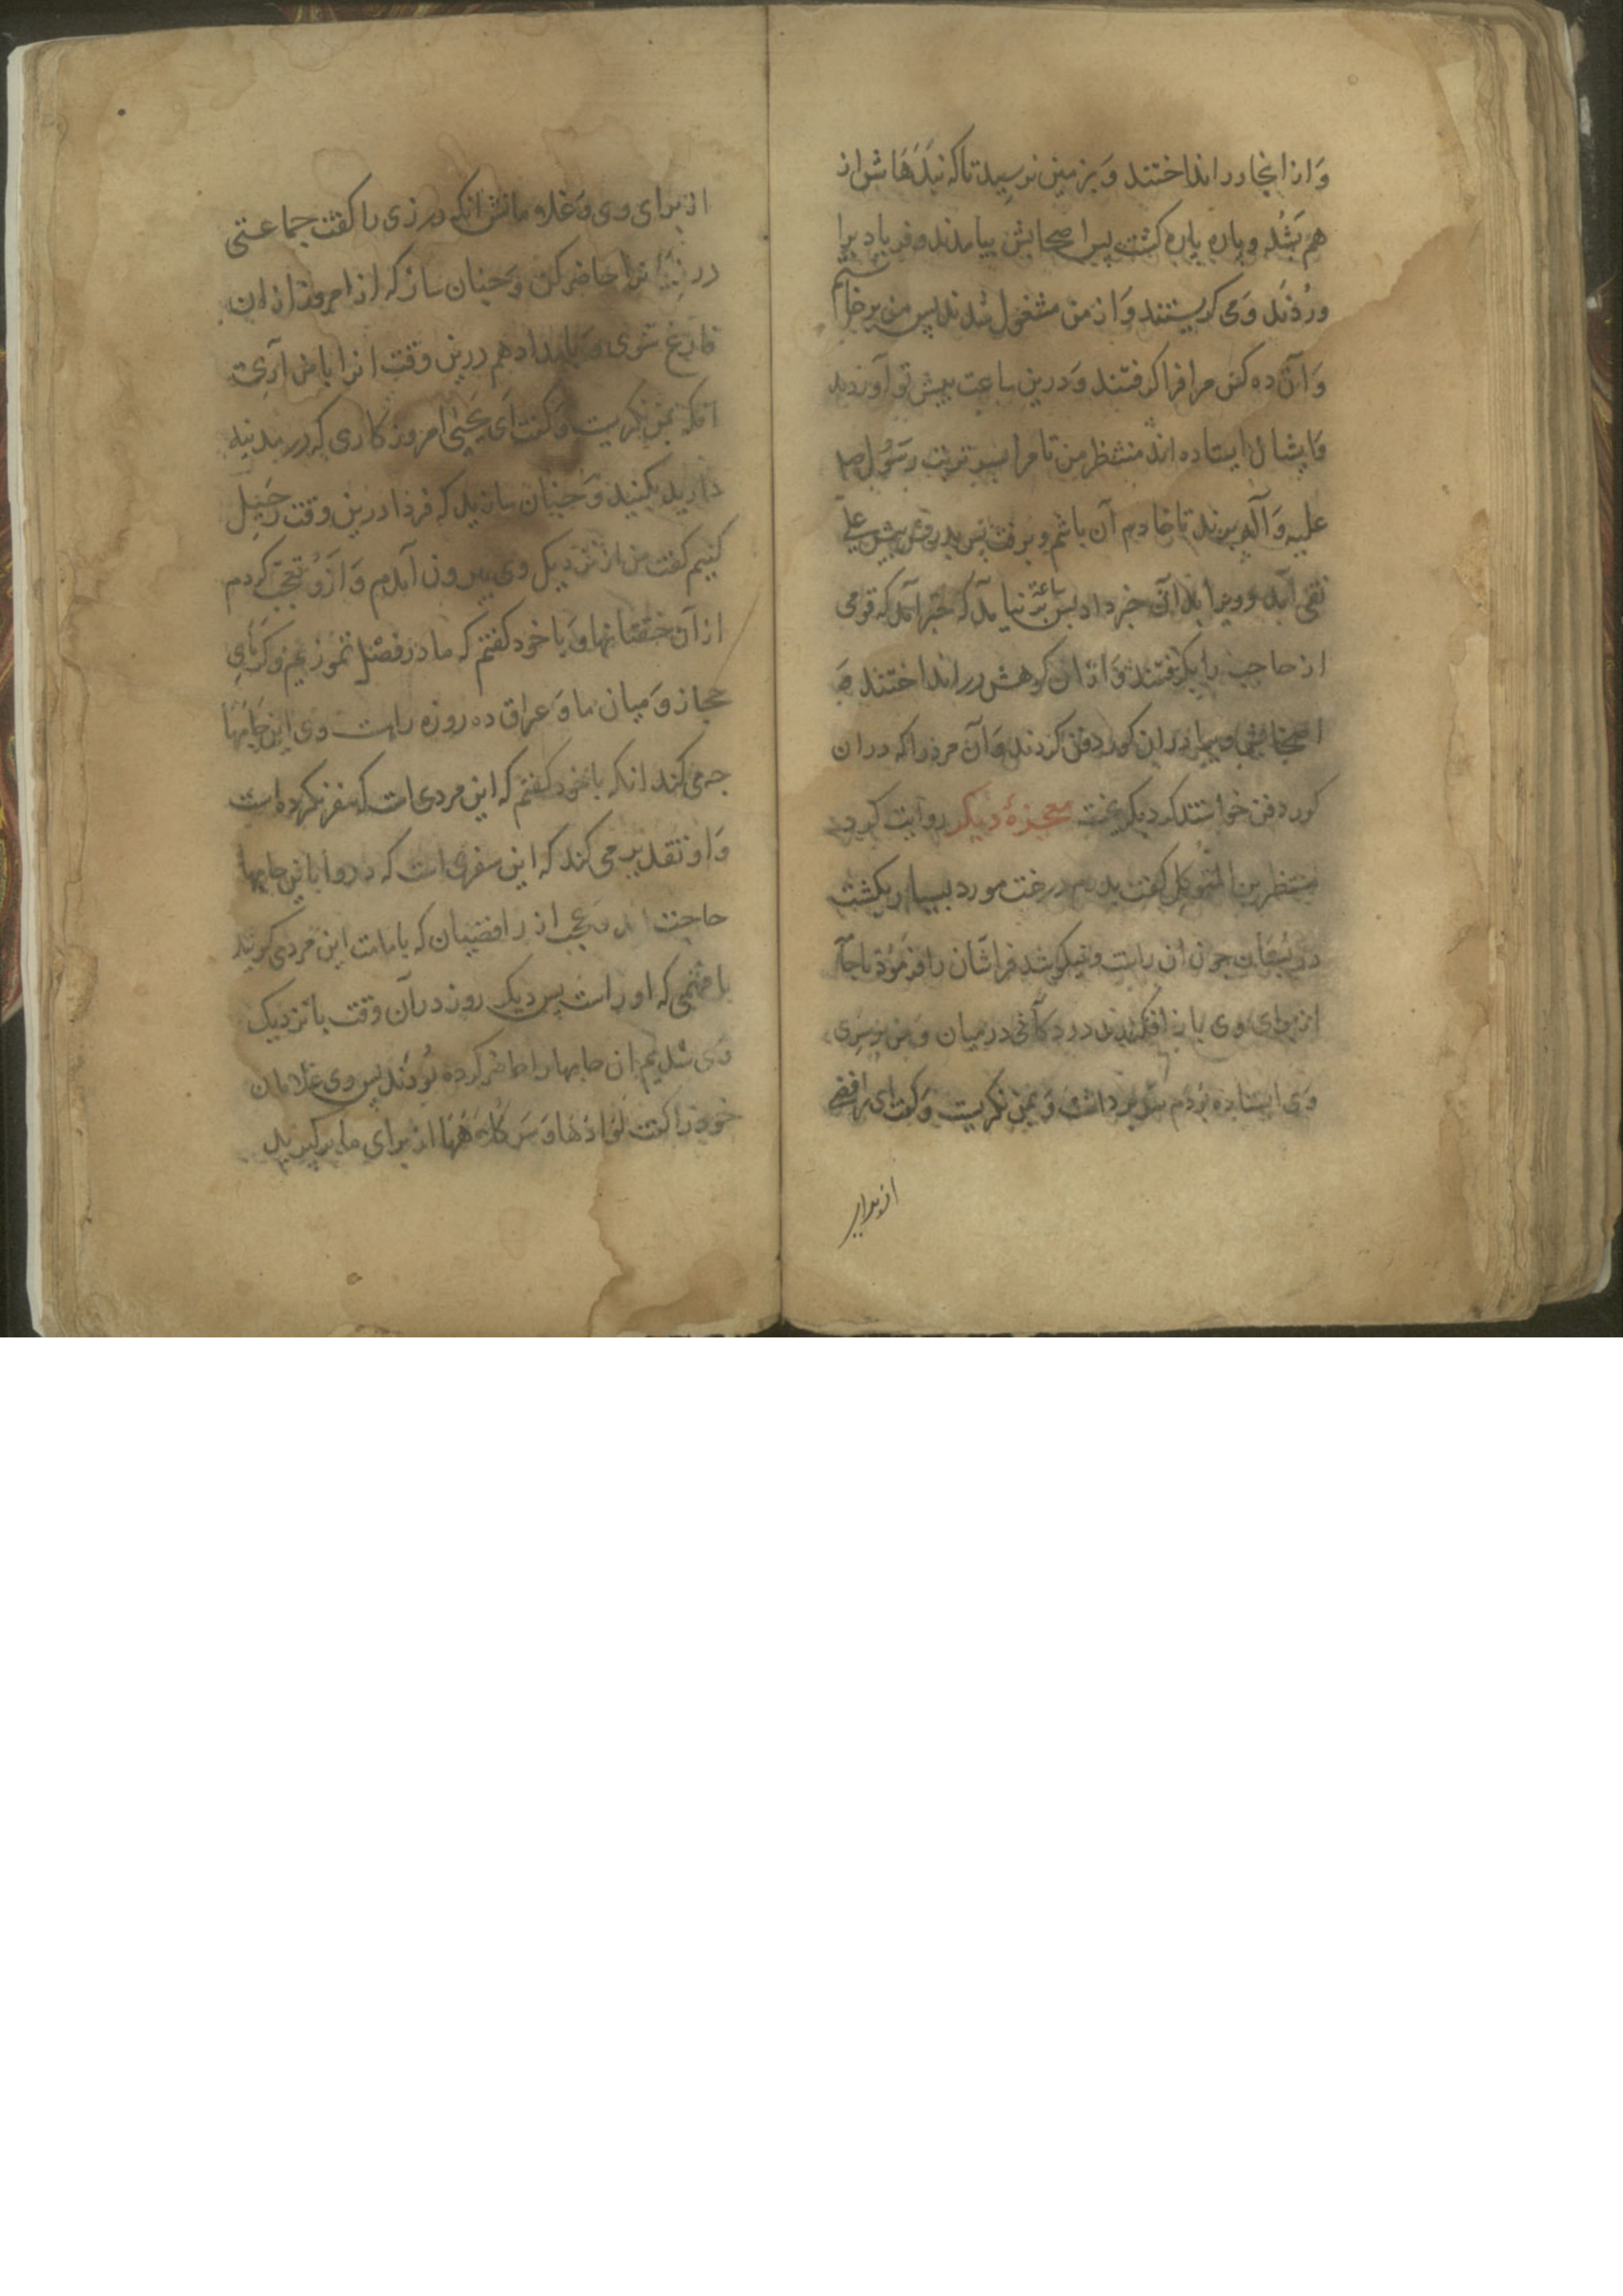 وَ از انجا در انداختند وَ بزمین نرسید تا که بندهَاش از
هم بشُد و پاره پاره کشت پس اصحابش بیامدند و فریاد بر ا
وردند وَ می کریستند وَ از من مشغول شدند پس من برخاستم
وَ آن ده کس مرا فرا کرفتند وَ درین ساعت پیش تو آوردند
وَ ایشان ایستاده اند منتظر من تا مرا بسر تربت رسُول صلی
علیه وَ آله برند تا خادم آن باشم و برفت پس پدر وی پیش علی
نقی آمد و ویرا بدان خبر داد پس ساعتی بر نیامد که خبر آمد که قومی
از حاجب را بکرفتند وَ از ان کوهش در انداختند وَ
اصحابش ویرا در ان کور دفن کردند وَ آن مرد را که در ان
کور دفن خواستند کرد بکریخت معجزهٔ دیکر روایت کرد
منتظر بن المتوکل کفت پدرم درخت مورد بسیار بکشت
در بُستان جون آن راست و نیکو شد فراشان را فرمُود تا جآ
از برای وی باز افکندند در دکانی در میان وَ من بر سر
وی ایستاده بُودم سر بر داشت وَ بمن نکریست وَ کفت ای رافضی
از برای
از برای وی وَ غلامانش انکه درزی را کفت جماعتی
درزیان را حاضر کن وَ جنان ساز که از امروز از ان
فارغ شوی وَ بامداد هم درین وقت انرا با من آری
انکه بمن نکریست وَ کفت ای یحیی امروز کاری که در مدینه
دارید بکنید وَ جنان سازید که فردا درین وقت رَحیل
کنیم کفت من از نزدیک وی بیرون آمدم وَ ازو تعجّب کردم
از آن خفتانها وَ با خود کفتم که ما در فصل تموزیم و کرمای
حجاز وَ میان ما وَ عراق ده روزه راست وی این جامها
جه می کند انکه با خود کفتم که این مردی است که سفر نکرده است
وَ او تقدیر می کند که این سفری است که درو با این جامها
حاجت اند وَ عجب از رافضیان که بامامت این مرد می کویند
با فهمی که او راست پس دیک روز در آن وقت با نزدیک
وی شدیم ان جامها را حاضر کرده بُودند پس وی غلامان
خود را کفت لبّادها وَ سر کلاهَها از برای ما بر کیرید